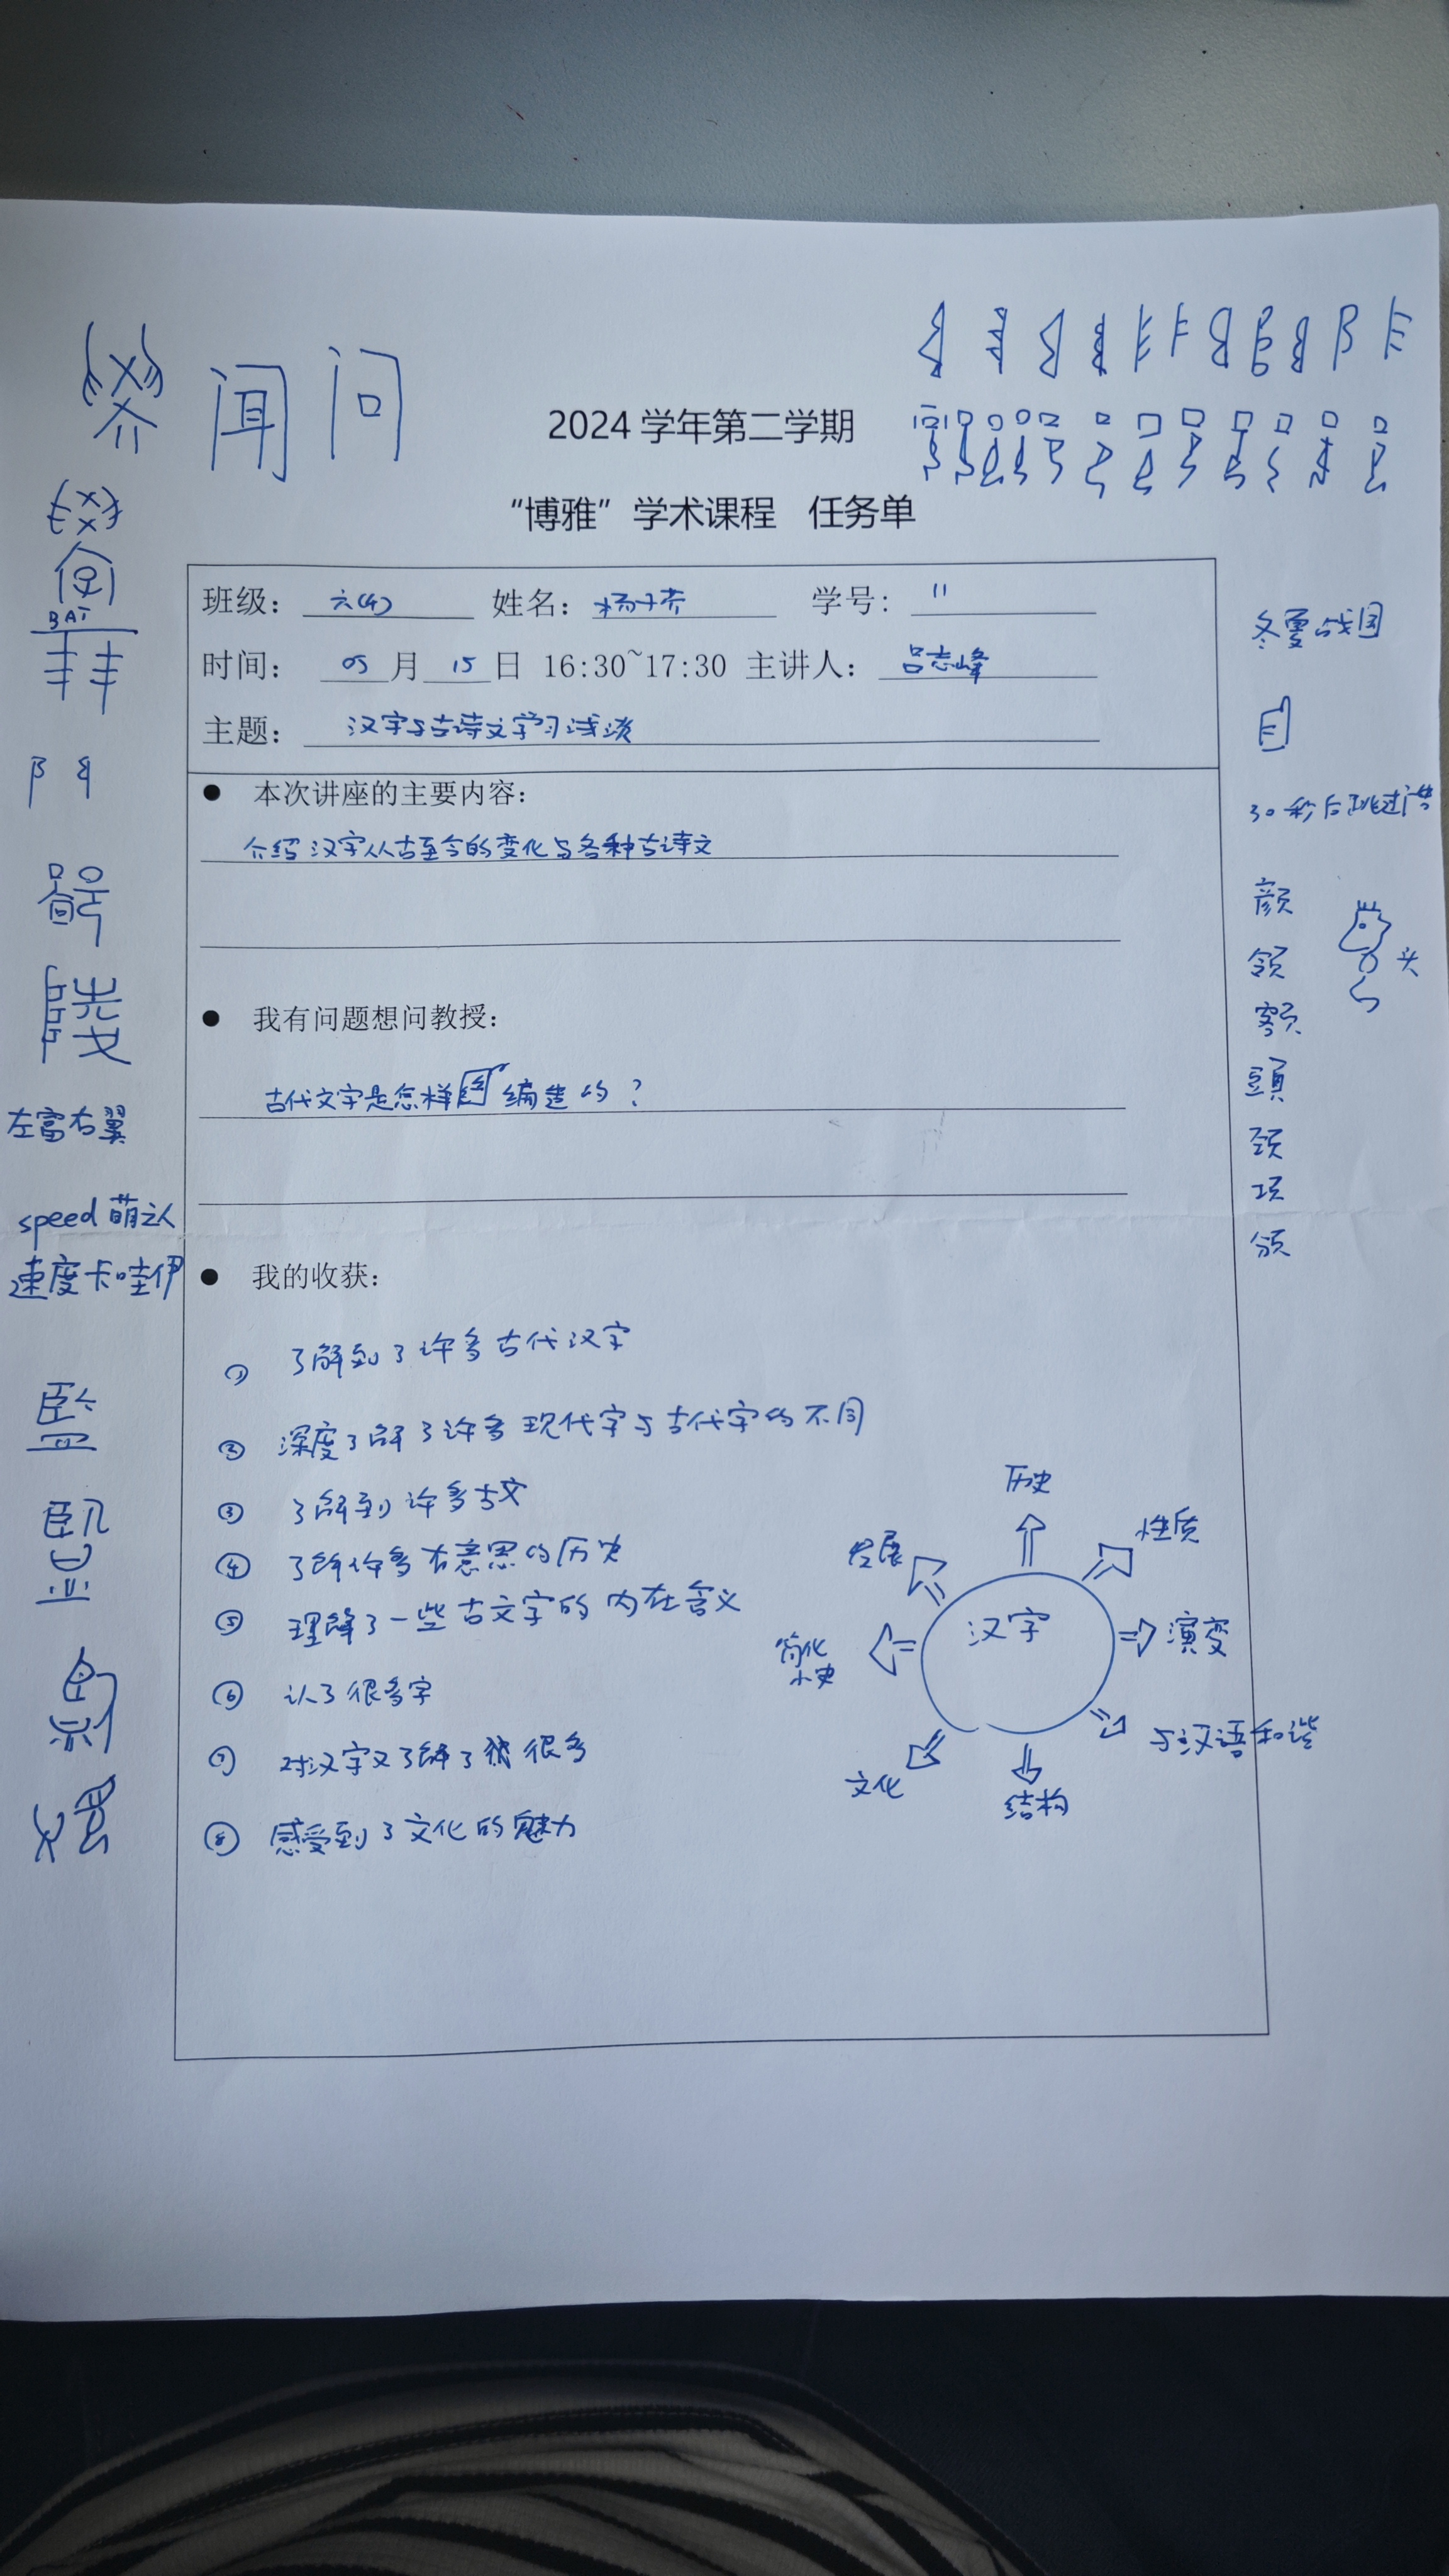 闻 问
2024 学年第二学期
“博雅”学术课程 任务单
班级: 六(4) 姓名: 学号: 11
时间: 05 月 15 日 16:30~17:30 主讲人: 吕志峰
主题: 汉字与古诗文学习浅谈
● 本次讲座的主要内容:
介绍汉字从古至今的变化与各种古诗文
● 我有问题想问教授:
古代文字是怎样 编造的?
● 我的收获:
① 了解到了许多古代汉字
② 深度了解了许多现代字与古代字的不同
③ 了解到许多古文
④ 了解许多有意思的历史
⑤ 理解了一些古文字的内在含义
⑥ 认了很多字
⑦ 对汉字又了解了很多
⑧ 感受到了文化的魅力
汉字
历史
性质
演变
与汉语和谐
结构
文化
简化
小史
发展
BAT
左富右翼
speed 萌之人
速度卡哇伊
監
冬夏战国
30秒后跳过
颜
领 头
额
頭
颈
项
颁